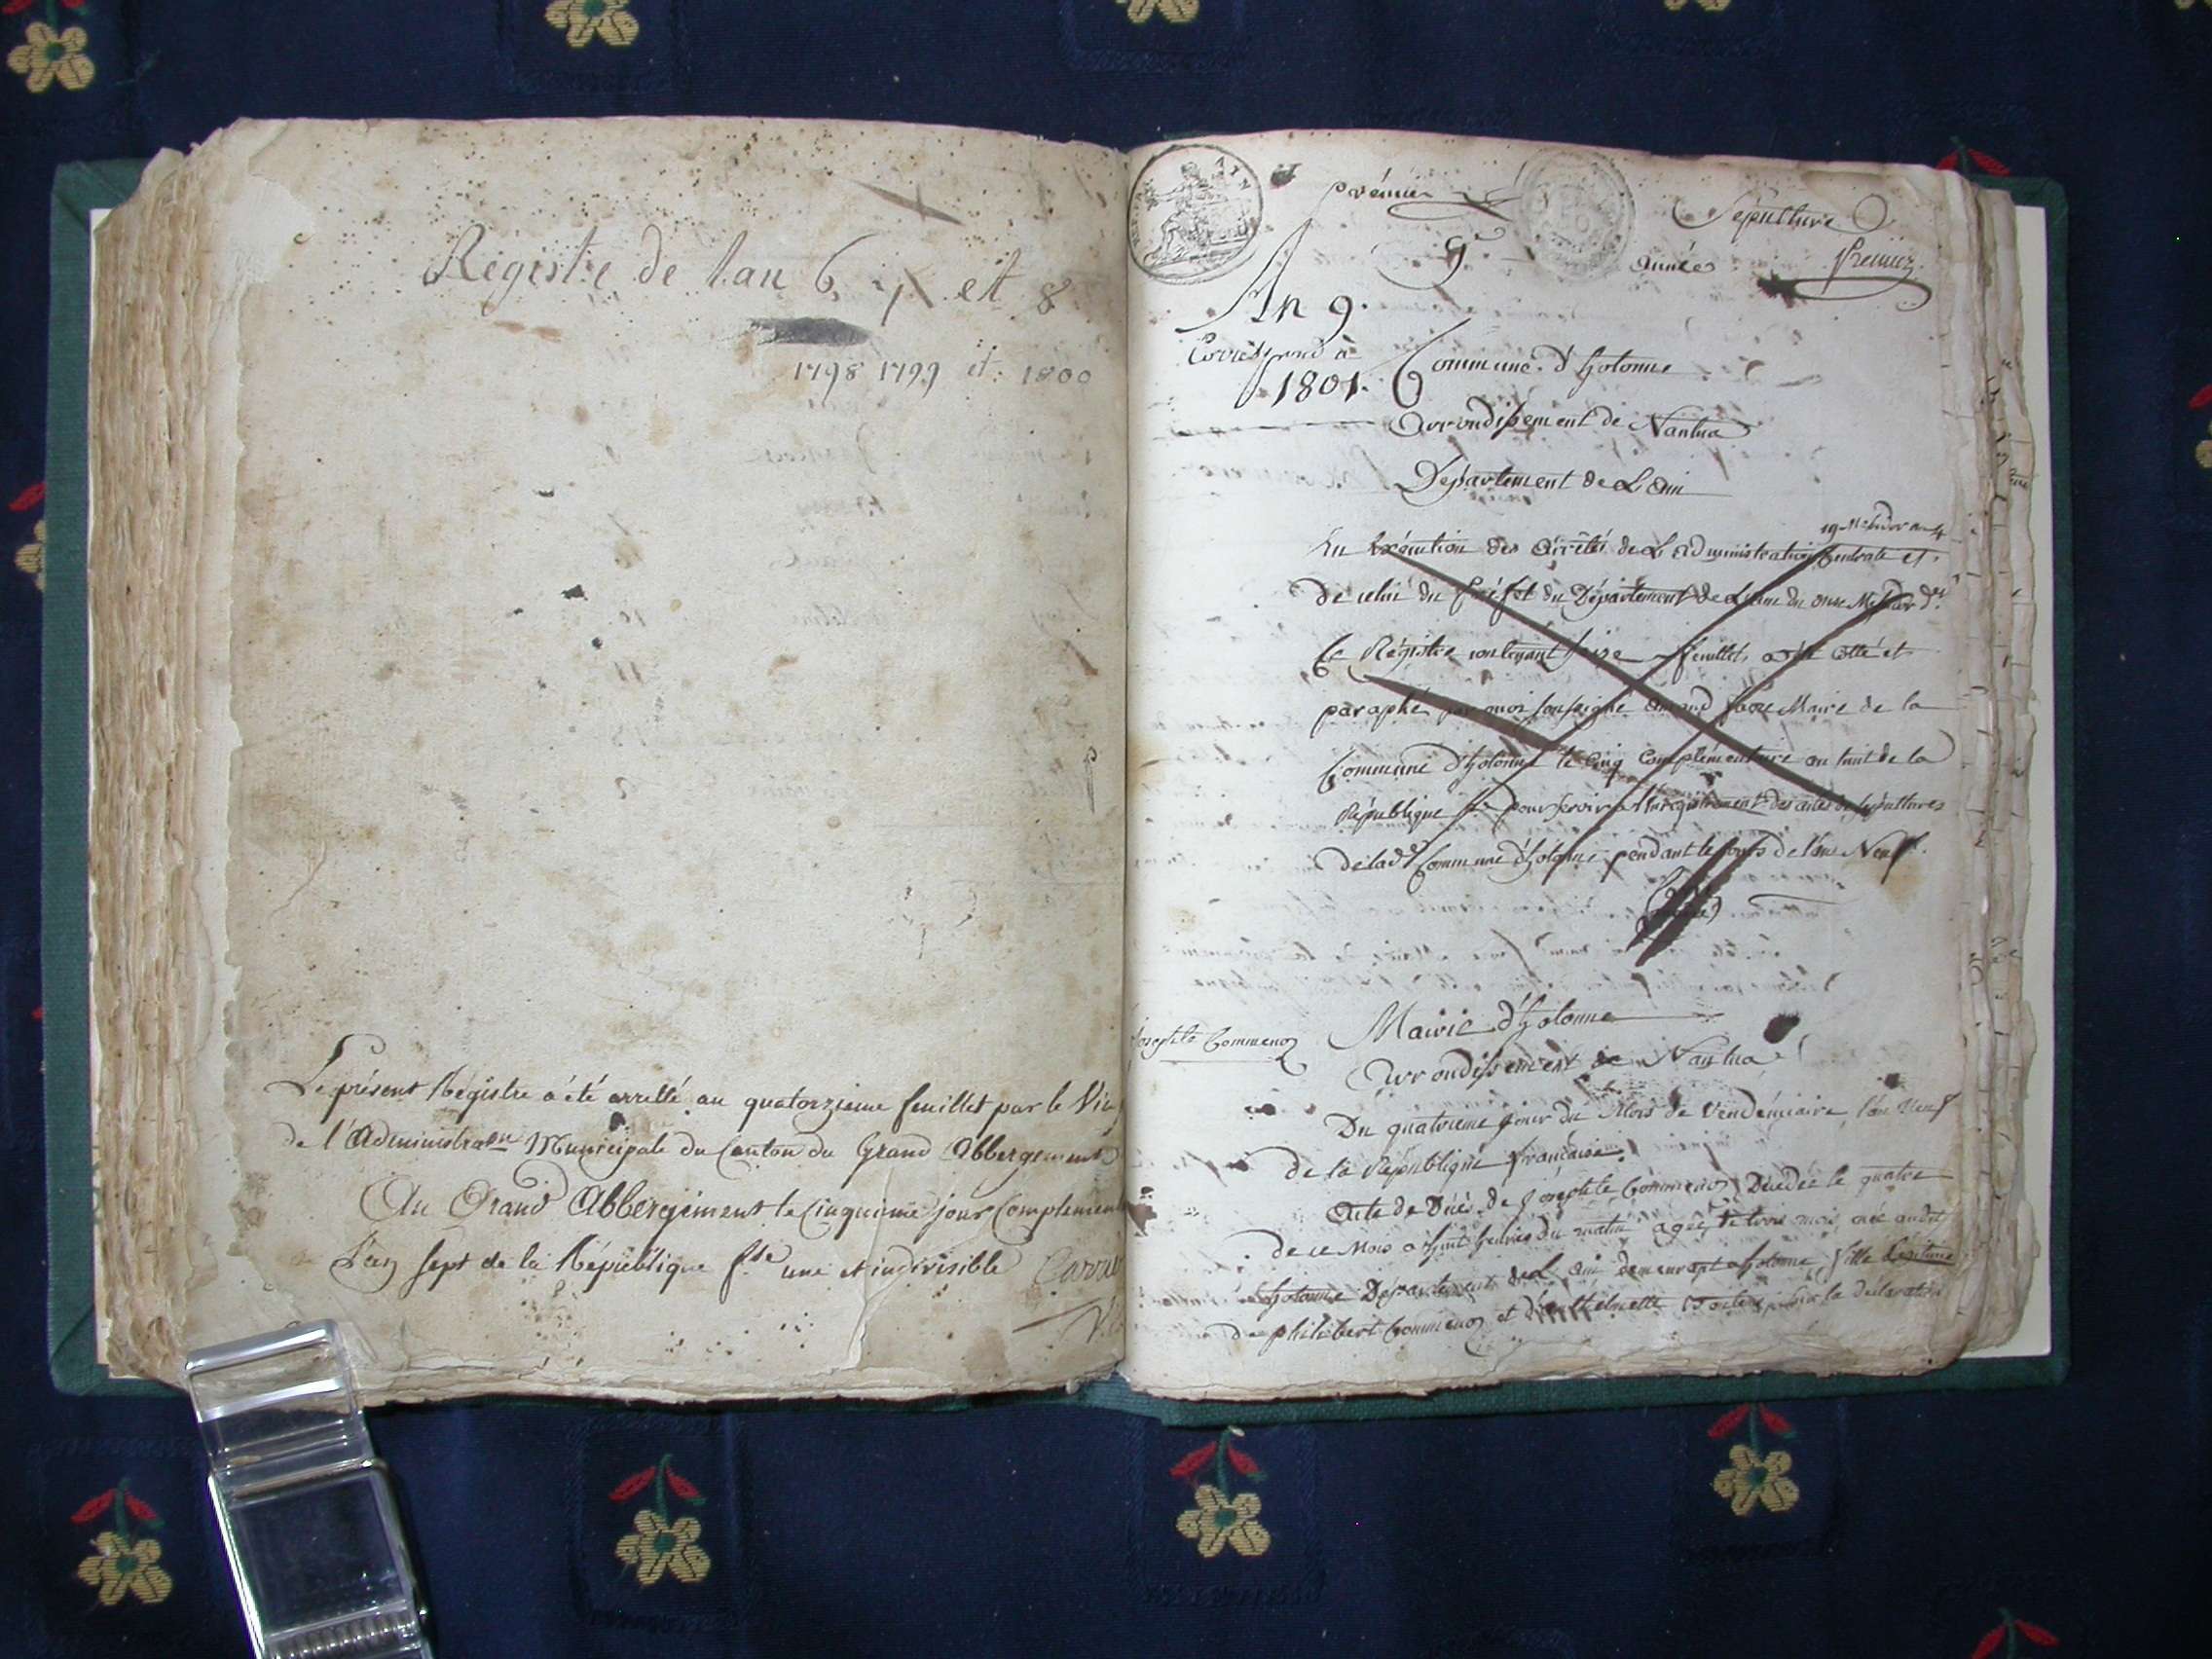 Registre de l'an 6, 7 et 8
1798 1799 et 1800
Le présent Registre a été arretté au quatorzieme feuillet par le
de l'Administraon Municipale du Canton du Grand Abbergement
Au Grand Abbergement le cinquieme jour Complement
L'an sept de la République fse une et indivisible
AIN
premier
Sépulture
9e
année
premier
An 9.
Correspond à
1801.
Commune d'hotonne
Arrondissement de Nantua
Département de L'ain
19 Messidor an 4
En Exécution des Arrêtés de L'administration Centrale et
de celui du Préfet du Département de L'ain du onze Messidor dr
Ce Régistre contenant seize feuillets a été cotté et
paraphé par moi soussigné favre Maire de la
Commune d'hotonne le cinq Complémentaire an huit de la
République fse pour servir a l'enregistrement des actes de sépultures
de lade Commune d'hotonne pendant le cours de l'an Neuf.
Josephte Commenoz
Mairie d'hotonne
Arrondissement de Nantua
Du quatrieme jour du Mois de Vendémiaire l'an Neuf
de la République française
Acte de Décès de Josephte Commenoz Décédée le quatre
de ce Mois a huit heures du matin agée de trois mois née audit
hotonne Département de L'ain demeurant a hotonne fille légitime
de philibert Commenoz et d'anthelmette sur la declaration